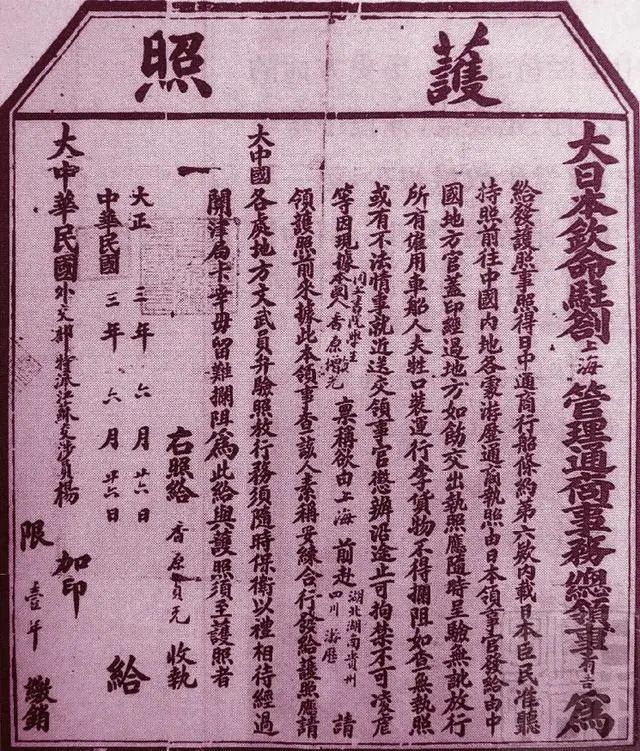 護照
大日本欽命駐劄上海管理通商事務總領事有吉為
給發護照事照得日中通商行船條約第六款內載日本臣民准聽
持照前往中國內地各處游歷通商執照由日本領事官發給由中
國地方官蓋印經過地方如飭交出執照應隨時呈驗無訛放行
所有僱用車船人夫牲口裝運行李貨物不得攔阻如查無執照
或有不法情事就近送交領事官懲辦沿途止可拘禁不可凌虐
等因現據本國人 香原 稟稱欲由上海前赴湖北湖南貴州四川游歷請
領護照前來據此本領事查該人素稱妥練合行發給護照應請
大中國各處地方文武員弁驗照放行務須隨時保衛以禮相待經過
關津局卡幸毋留難攔阻為此給與護照須至護照者
一 右照給香原 元收執
大正三年六月廿六日
中華民國三年六月廿六日 給
大中華民國外交部特派江蘇交涉員楊 加印
限壹年繳銷